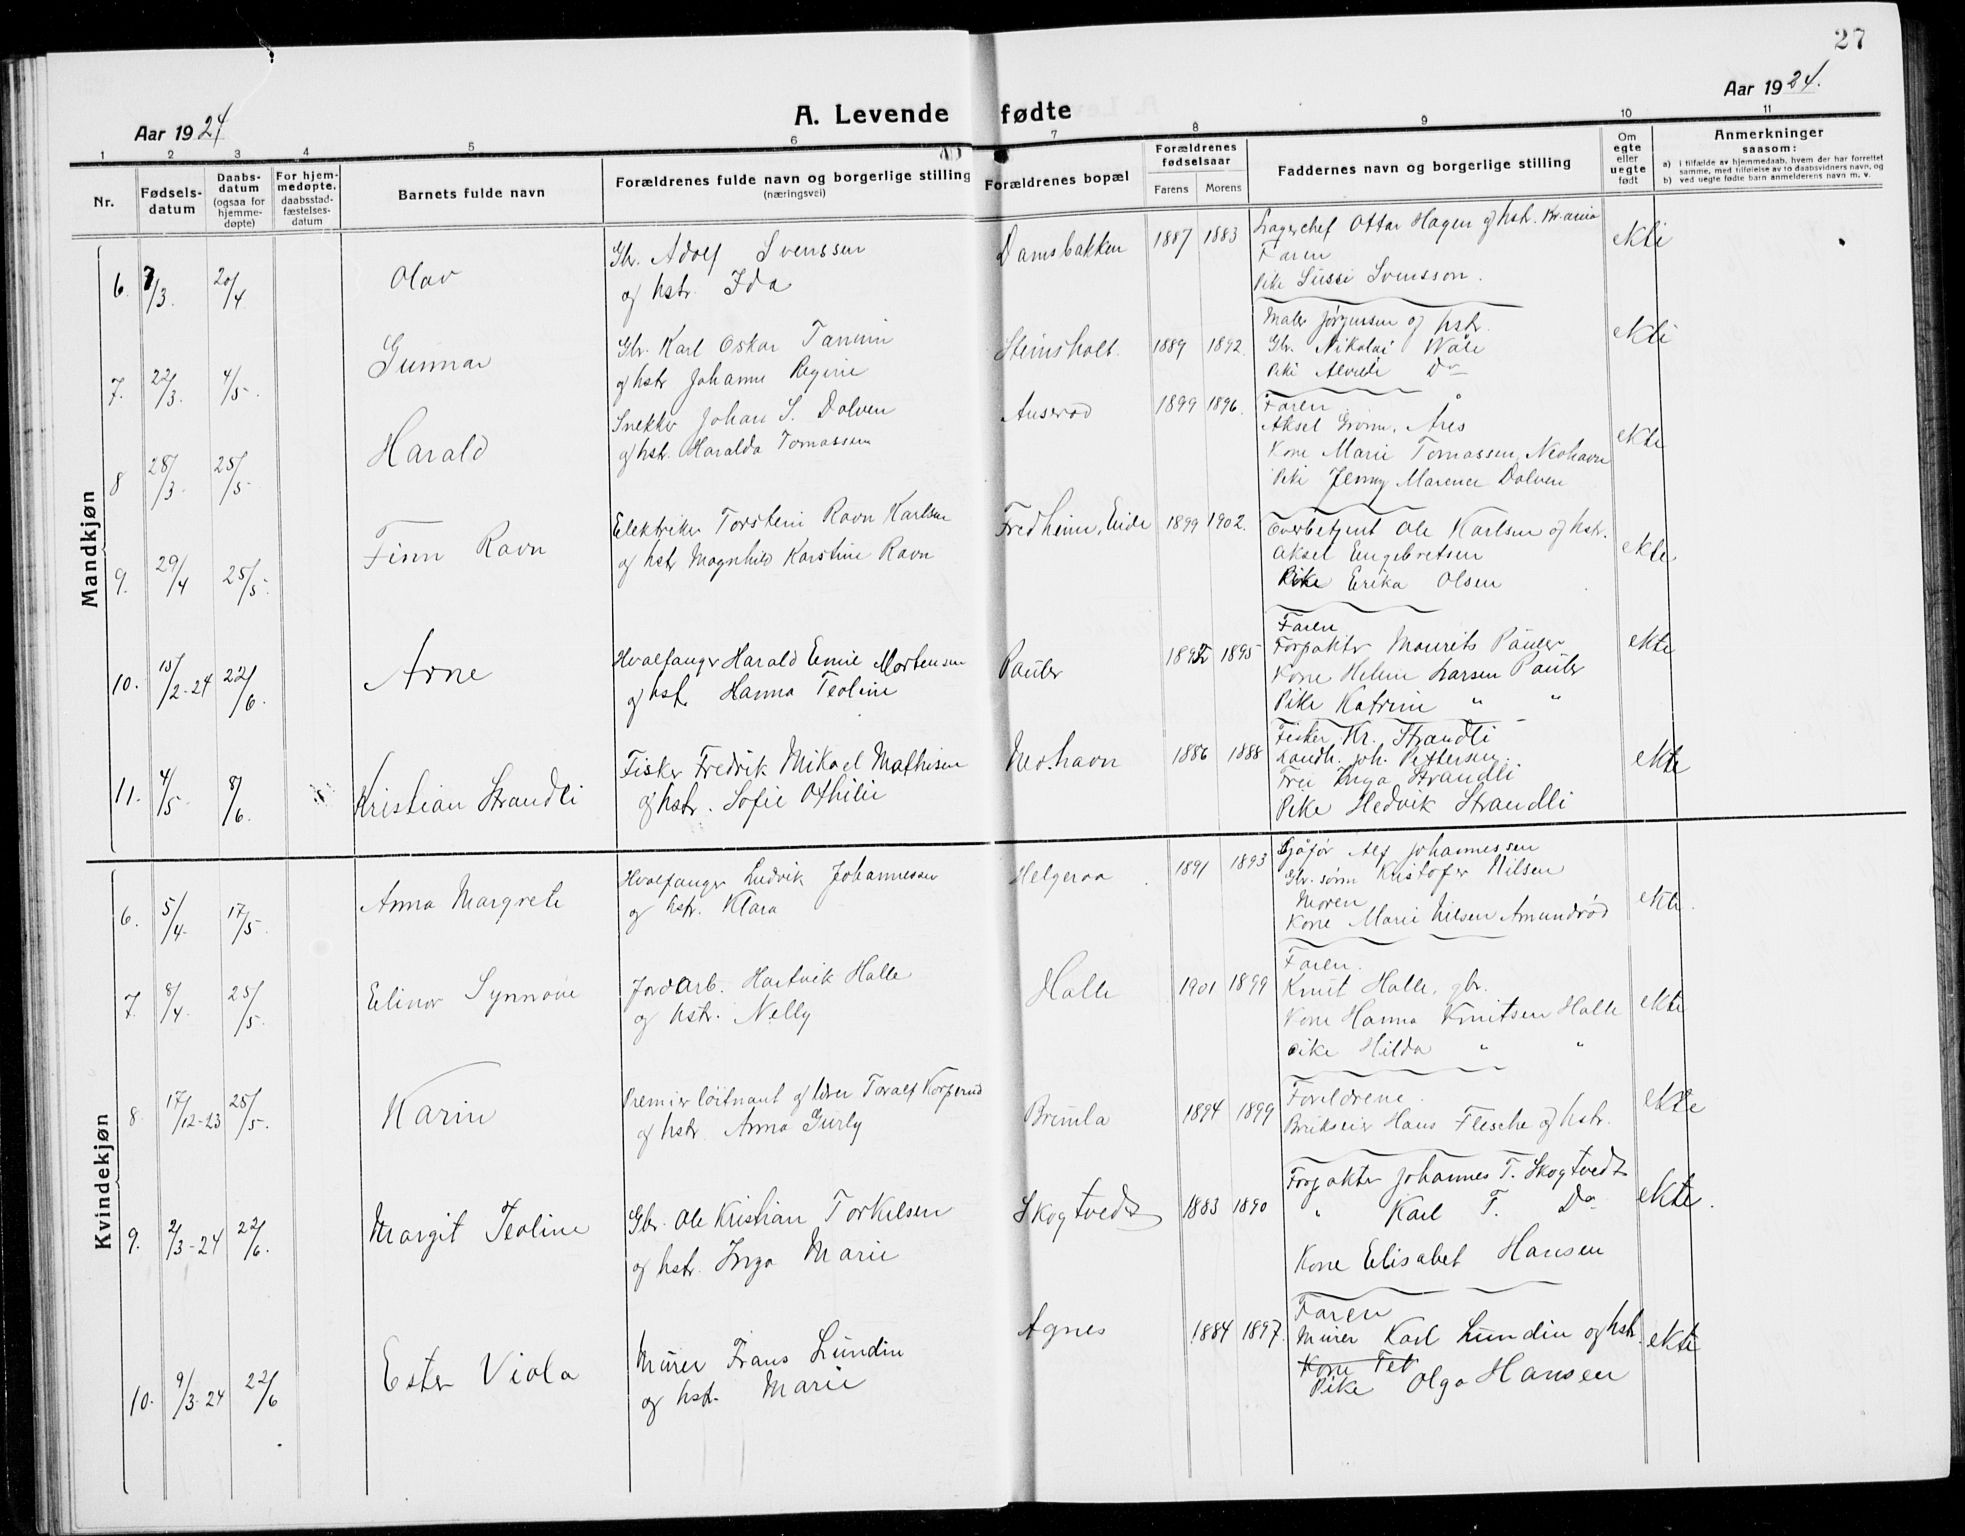 27
Aar 1924
A. Levende fødte
Aar 1924.
1 2 3 4 5 6 7 8 9 10 11
Nr.
Fødsels-
datum
Daabs-
datum
(ogsaa for
hjemme-
døpte)
For hjem-
medøpte,
daabsstad-
fæstelses-
datum
Barnets fulde navn
Forældrenes fulde navn og borgerlige stilling
(næringsvei)
Forældrenes bopæl
Forældrenes
fødselsaar
Farens Morens
Faddernes navn og borgerlige stilling
Om
egte
eller
uegte
født
Anmerkninger
saasom:
a) i tilfælde av hjemmedaab, hvem der har forrettet
samme, med tilføielse av to daabsvidners navn, og
b) ved uegte fødte barn anmelderens navn m. v.
Mandkjøn
6. 7/3. 20/4 Olav
Gbr. Adolf Svenssen
og hstr. Ida
Damsbakken 1887 1883
Lagerchef Ottar Hagen og hstr. Kr.ania
Faren
Pike Sussi Svensson.
ekte
7. 22/3. 4/5. Gunnar
Gbr. Karl Oskar Tanum
og hstr Johanne Regine
Steinsholt 1889 1892.
Maler Jørgensen og hstr.
Gbr. Nikolai Wåle
Pike Alvilde Do
ekte
8 28/3. 25/5 Harald
Snekker Johan S. Dolven
og hstr. Haralda Tomassen
Anserød 1899 1896.
Faren
Aksel Grønn, Ares
Kone Marie Tomassen, Nevhavn
Pike Jenny Marence Dolven
ekte
9. 29/4 25/5. Finn Ravn
Elektriker Torstein Ravn Karlsen
og hstr Magnhild Karstine Ravn
Fredheim, Eide 1899 1902.
Overbetjent Ole Karlsen og hstr.
Aksel Engebretsen
Pike Erika Olsen
ekte.
10. 15/2-24 22/6. Arne
Hvalfanger Harald Emil Mortensen
og hst. Hanna Teoline
Pauler 1892 1895
Faren
Forpakter Maurits Pauler
Kone Helene Larsen Pauler
Pike Katrine " "
ekte
11. 4/5. 8/6. Kristian Strandli
Fisker Fredrik Mikael Mathisen
og hstr. Sofie Othilie
Nevhavn 1886 1888
Fisker Kr. Strandli
Landh. Joh. Pettersen.
Fru Inga Strandli
Pike Hedvik Strandli
ekte
Kvindekjøn
6. 5/4. 17/5. Anna Margrete
Hvalfanger Ludvik Johannessen
og hstr. Klara
Helgeraa 1891 1893
Sjåfør Alf Johannessen
Gbr. sønn Kristofer Nilsen
Moren
Kone Marie Nilsen Amundrød
ekte.
7. 8/4. 25/5. Elinor Synnøve
Jordarb. Hartvik Halle
og hstr. Nelly
Halle 1901 1899
Faren.
Knut Halle, gbr.
Kone Hanna Knutsen Halle
Pike Hilda " "
ekte
8. 17/12-23 25/5. Karin
Premierløitnant og lærer Toralf Korperud
og hstr. Anna Gurly
Brunla 1894 1899
Foreldrene.
Brukseier Hans Flesche og hstr.
ekte
9. 2/3-24 22/6. Margit Teoline
Gbr. Ole Kristian Torkelsen
og hstr. Inga Marie
Skogtvedt 1883 1890
Forpakter Johannes T. Skogtvedt
" Karl T. Do
Kone Elisabet Hansen
ekte.
10. 9/3-24 22/6 Ester Viola
Murer Frans Lundin
og hstr. Marie
Agnes 1884 1897.
Faren
Murer Karl Lundin og hstr.
Kone Pet
Pike Olga Hansen
ekte